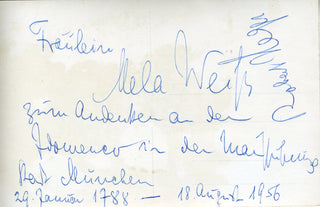 Fräulein
Mela Weiß
zum Andenken an den
Idomeneo in der
Stadt München
29. Januar 1788 – 18. August 1956